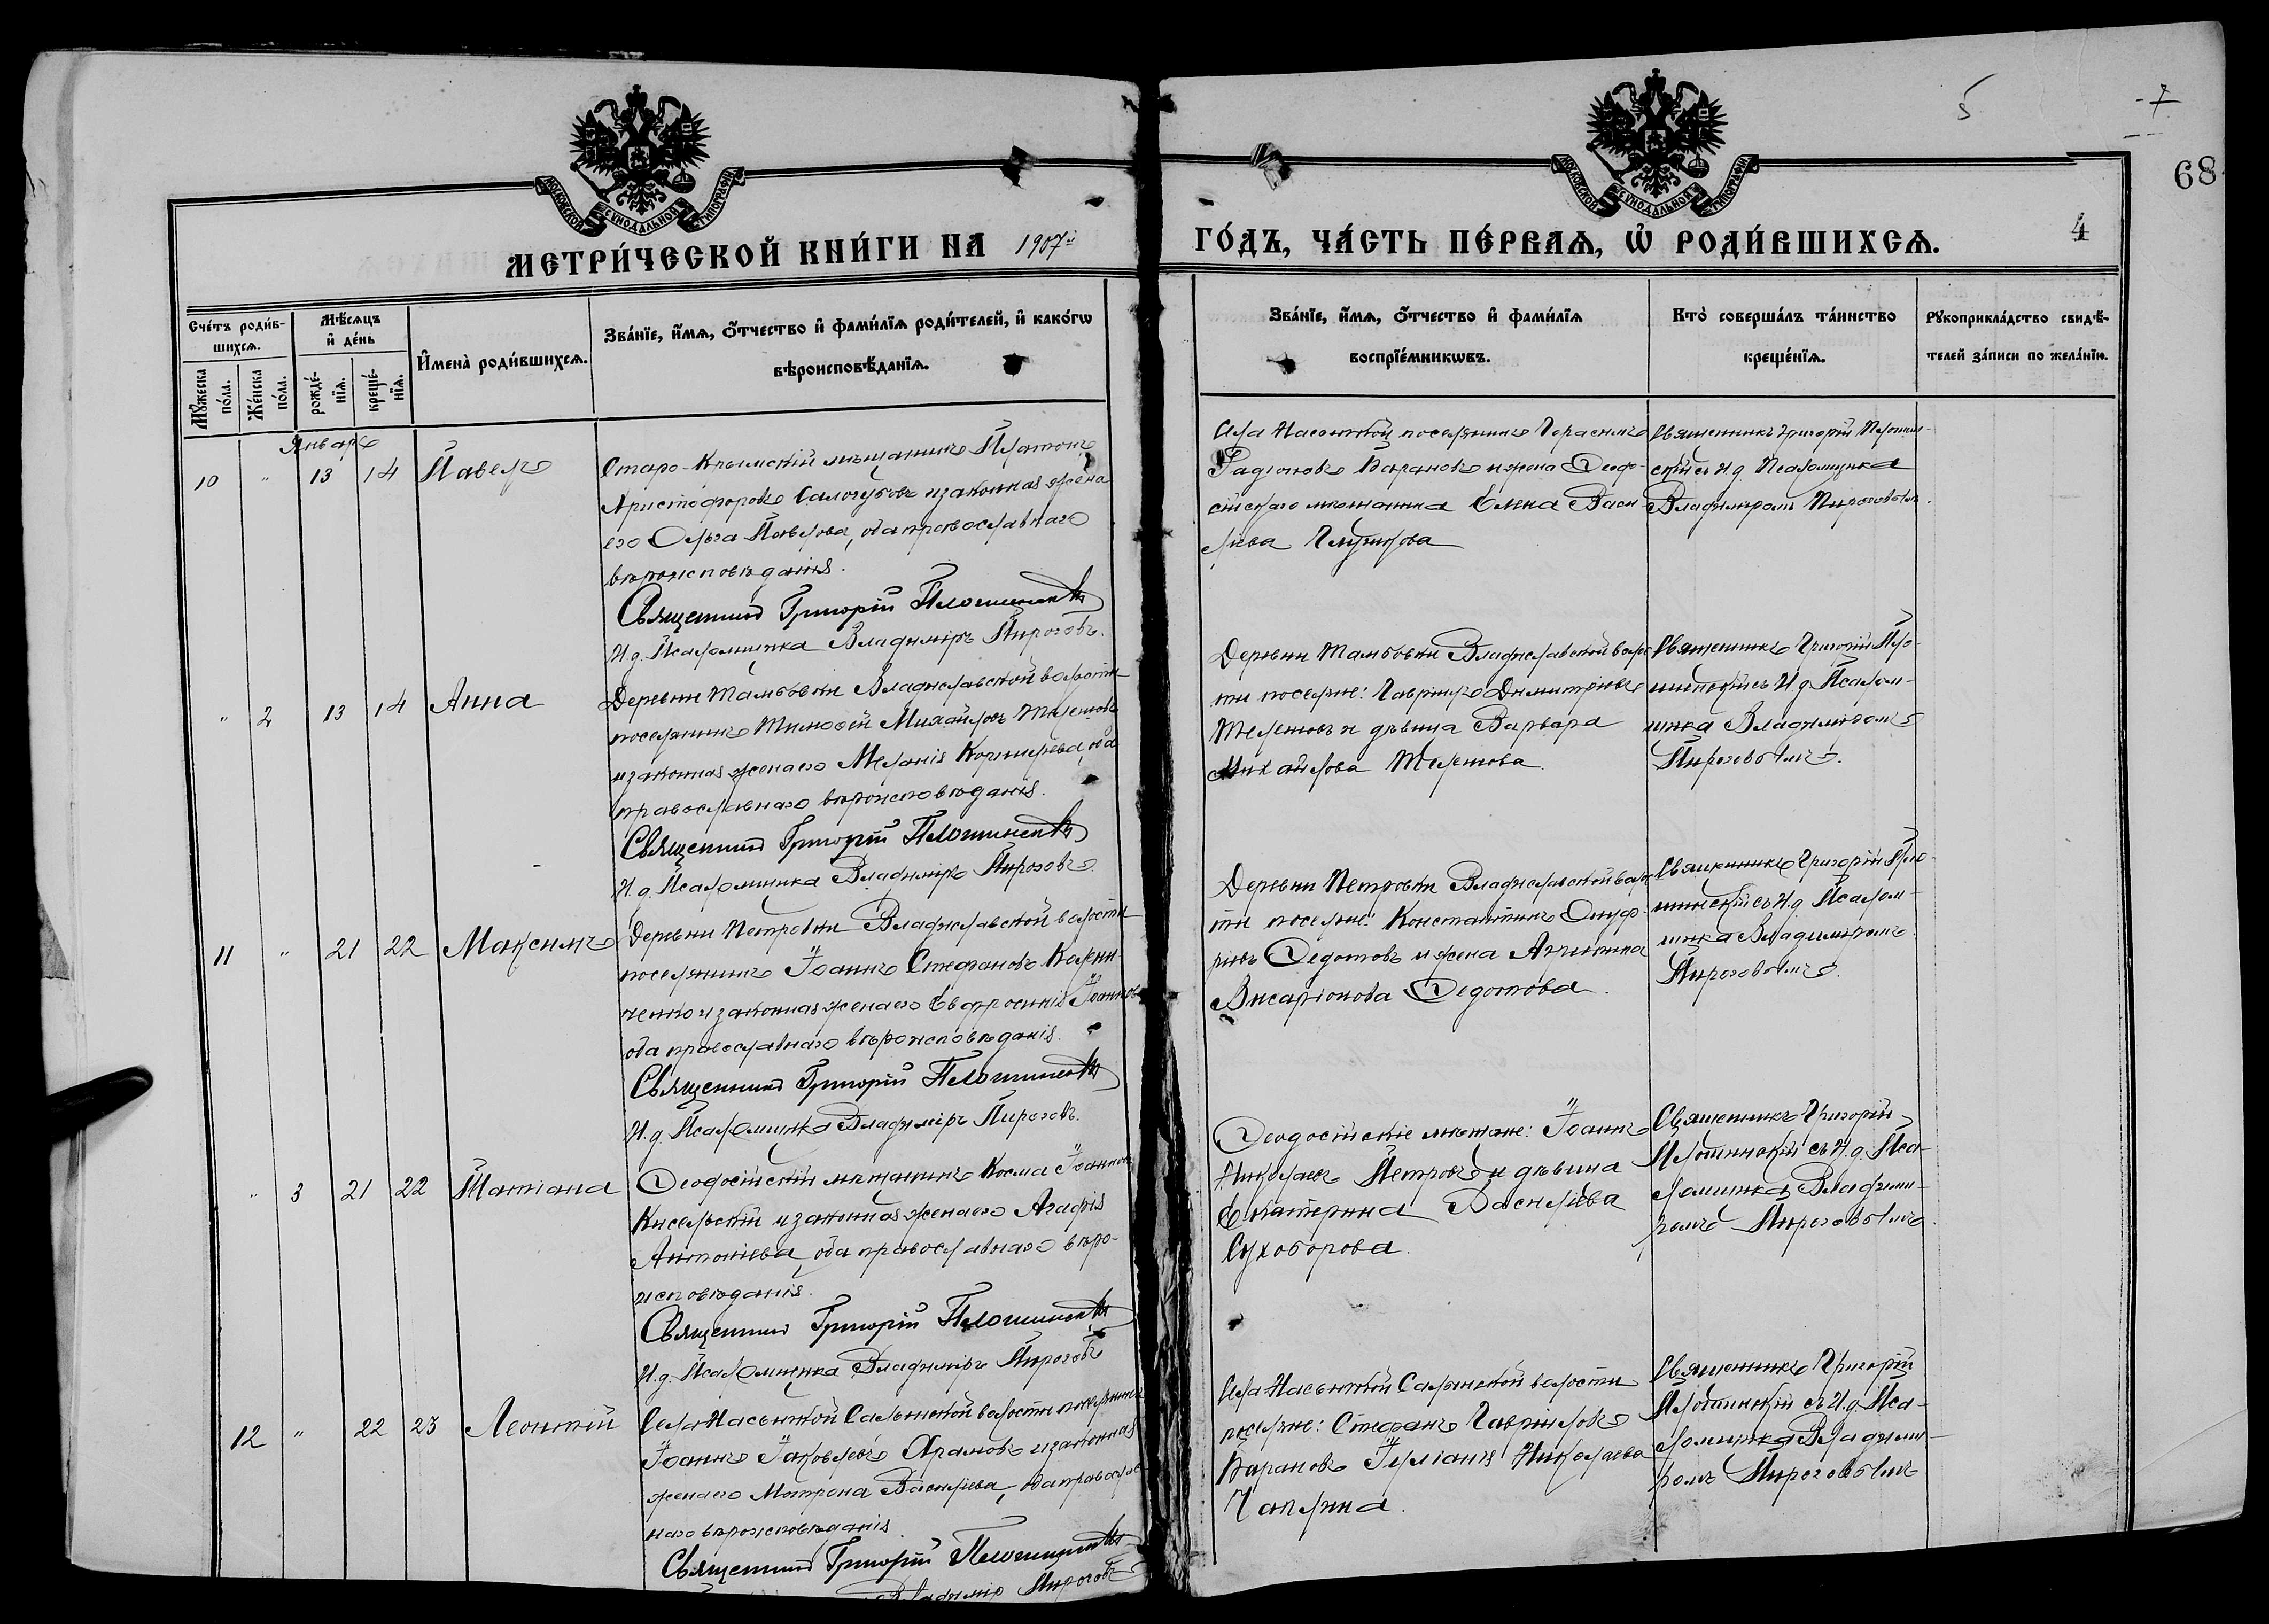 5
7
68
4
МОСКОВСКОЙ СѴНОДАЛЬНОЙ ТИПОГРАФІИ
МОСКОВСКОЙ СѴНОДАЛЬНОЙ ТИПОГРАФІИ
МЕТРИ́ЧЕСКОЙ КНИ́ГИ НА 1907й
ГО́ДЪ, ЧА́СТЬ ПЕ́РВАѦ, Ѡ҆ РОДИ́ВШИХСѦ.
Сче́тъ роди́в-
шихсѧ.
Мꙋ́жеска по́ла.
Же́нска по́ла.
Мѣ́сѧцъ и҆ де́нь
рожде́-
нїѧ.
креще́-
нїѧ.
И҆мена̀ роди́вшихсѧ.
Зва́нїе, и҆́мѧ, ѻ҆́тчество и҆ фами́лїѧ роди́телей, и҆ како́гѡ
вѣроисповѣ́данїѧ.
Зва́нїе, и҆́мѧ, ѻ҆́тчество и҆ фами́лїѧ
воспрїе́мникѡвъ.
Кто̀ соверша́лъ та́инство
креще́нїѧ.
Рꙋкоприкла́дство свидѣ́-
телей за́писи по жела́нїю.
Январь
10 " 13 14 Павелъ
Старо-Крымскій мѣщанинъ Платонъ
Христофоровъ Салогубовъ и законная жена
его Ольга Павлова, оба православнаго
вѣроисповѣданія.
Священникъ Григорій Плошинскій
И.д. Псаломщика Владиміръ Пироговъ.
Села Насыпкой поселянинъ Герасимъ
Радіоновъ Барановъ и жена Ѳеодо-
сійскаго мѣщанина Елена Васи-
льева
Священникъ Григорій Плошин-
скій съ И.д. Псаломщика
Владиміромъ Пироговымъ.
" 2 13 14 Анна
Деревни Тамбовки Владиславской волости
поселянинъ Тимоѳей Михайловъ Телешовъ
и законная жена его Меланія Корнильева, оба
православнаго вѣроисповѣданія.
Священникъ Григорій Плошинскій
И.д. Псаломщика Владиміръ Пироговъ.
Деревни Тамбовки Владиславской волос-
ти поселяне: Гавріилъ Димитріевъ
Телешовъ и дѣвица Варвара
Михайлова Телешова
Священникъ Григорій Пло-
шинскій съ И.д. Псалом-
щика Владиміромъ
Пироговымъ.
11 " 21 22 Максимъ
Деревни Петровки Владиславской волости
поселянинъ Іоаннъ Стефановъ Калени-
ченко и законная жена его Евфросинія Іоаннова
оба православнаго вѣроисповѣданія.
Священникъ Григорій Плошинскій
И.д. Псаломщика Владиміръ Пироговъ.
Деревни Петровки Владиславской волос-
ти поселяне: Константинъ Онуф-
ріевъ Ѳедотовъ и жена Агрипина
Висаріонова Ѳедотова.
Священникъ Григорій Пло-
шинскій съ И.д. Псалом-
щика Владиміромъ
Пироговымъ.
" 3 21 22 Татіана
Ѳеодосійскій мѣщанинъ Косма Іоанновъ
Кисельскій и законная жена его Агафія
Антоніева, оба православнаго вѣро-
исповѣданія.
Священникъ Григорій Плошинскій
И.д. Псаломщика Владиміръ Пироговъ
Ѳеодосійскіе мѣщане: Іоаннъ
Николаевъ Петровъ и дѣвица
Екатерина Васильева
Сухоборова.
Священникъ Григорій
Плошинскій съ И.д. Пса-
ломщика Владимі-
ромъ Пироговымъ.
12 " 22 23 Леонтій
Села Насыпкой Салынской волости поселянинъ
Іоаннъ Іаковлевъ Храмовъ и законная
жена его Матрона Васильева, оба православ-
наго вѣроисповѣданія
Священникъ Григорій Плошинскій
Владиміръ Пироговъ
Села Насыпкой Салынской волости
поселяне: Стефанъ Гавріиловъ
Барановъ Іуліанія Николаева
Чаплина.
Священникъ Григорій
Плошинскій съ И.д. Пса-
ломщика Владимі-
ромъ Пироговымъ